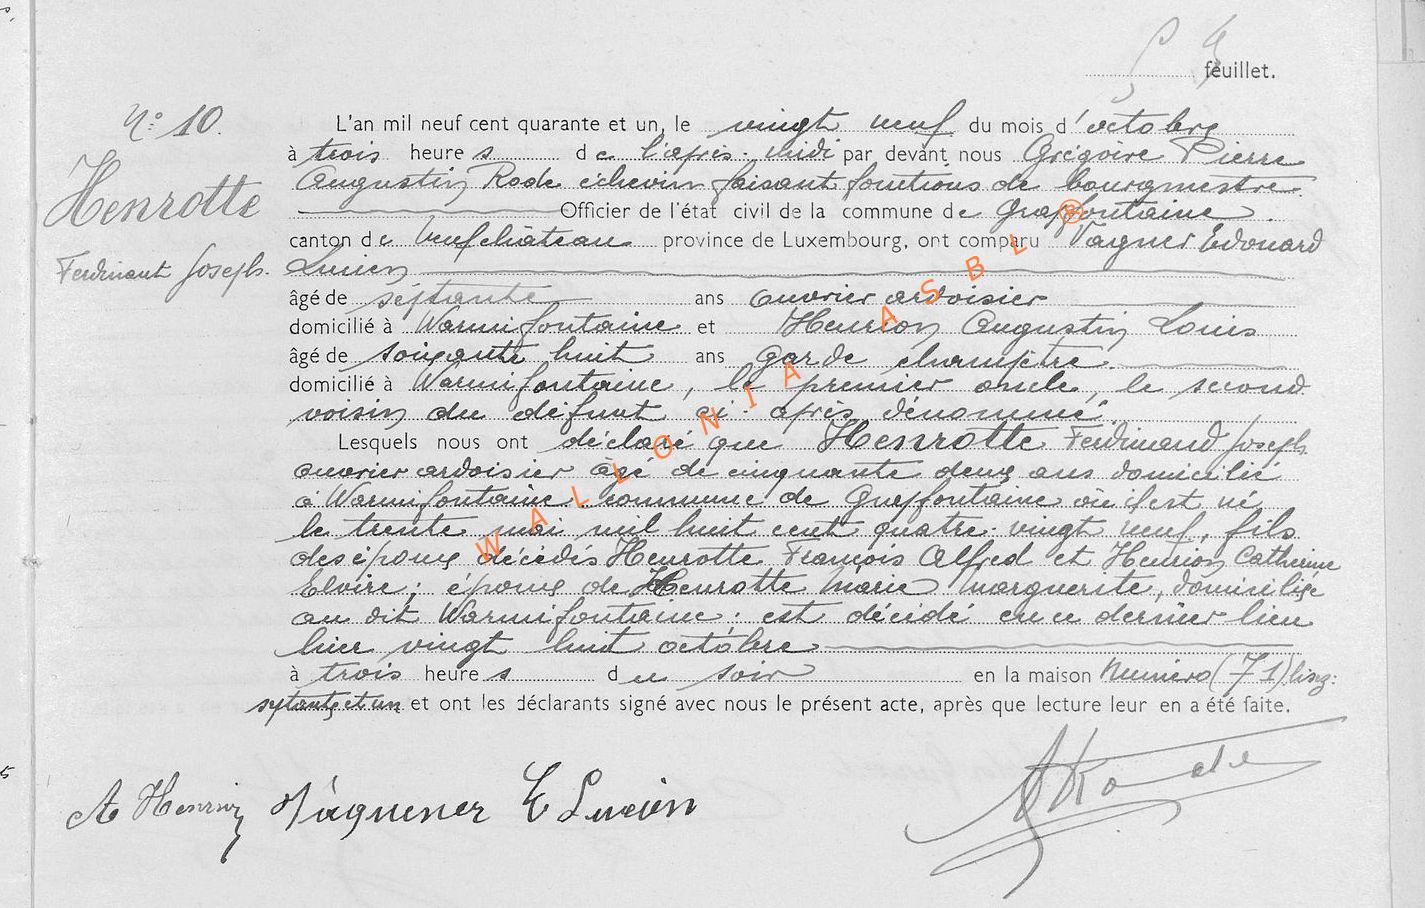 feuillet.
N° 10.
Henrotte
Ferdinant Joseph.
L'an mil neuf cent quarante et un, le vingt neuf du mois d'octobre
à trois heure s de l'après-midi par devant nous Grégoire Pierre
Augustin Rode échevin faisant fonctions de bourgmestre
Officier de l'état civil de la commune de Grapfontaine
canton de Neufchâteau province de Luxembourg, ont comparu Vagner Edouard
Lucien
âgé de séptante ans ouvrier ardoisier
domicilié à Warmifontaine et Henrion Augustin Louis
âgé de soixante huit ans garde champêtre.
domicilié à Warmifontaine, le premier oncle, le second
voisin du défunt ci-après dénommé.
Lesquels nous ont déclaré que Henrotte Ferdinand Joseph
ouvrier ardoisier âgé de cinquante deux ans domicilié
à Warmifontaine commune de Grapfontaine où il est né
le trente mai mil huit cent quatre-vingt neuf, fils
des époux décédés Henrotte François Alfred et Henrion Catherine
Elvire; époux de Henrotte Marie Marguerite, domiciliée
au dit Warmifontaine; est décédé en ce dernier lieu
hier vingt huit octobre
à trois heure s du soir en la maison numéro (71) lisez:
septante et un et ont les déclarants signé avec nous le présent acte, après que lecture leur en a été faite.
A Henrion Vagnener E Lucien ARode
WALLONIA ASBL ®